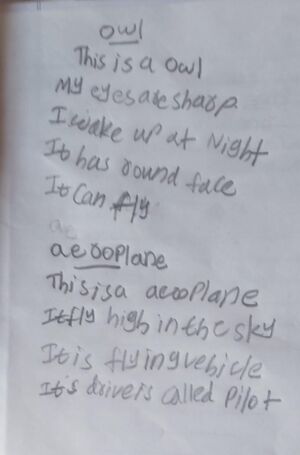 owl
This is a owl
My eyes are sharp
I wake up at Night
It has round face
It can fly
ae
aerooplane
This is a aerooplane
It fly high in the sky
It is flying vehicle
It's driver is called Pilot